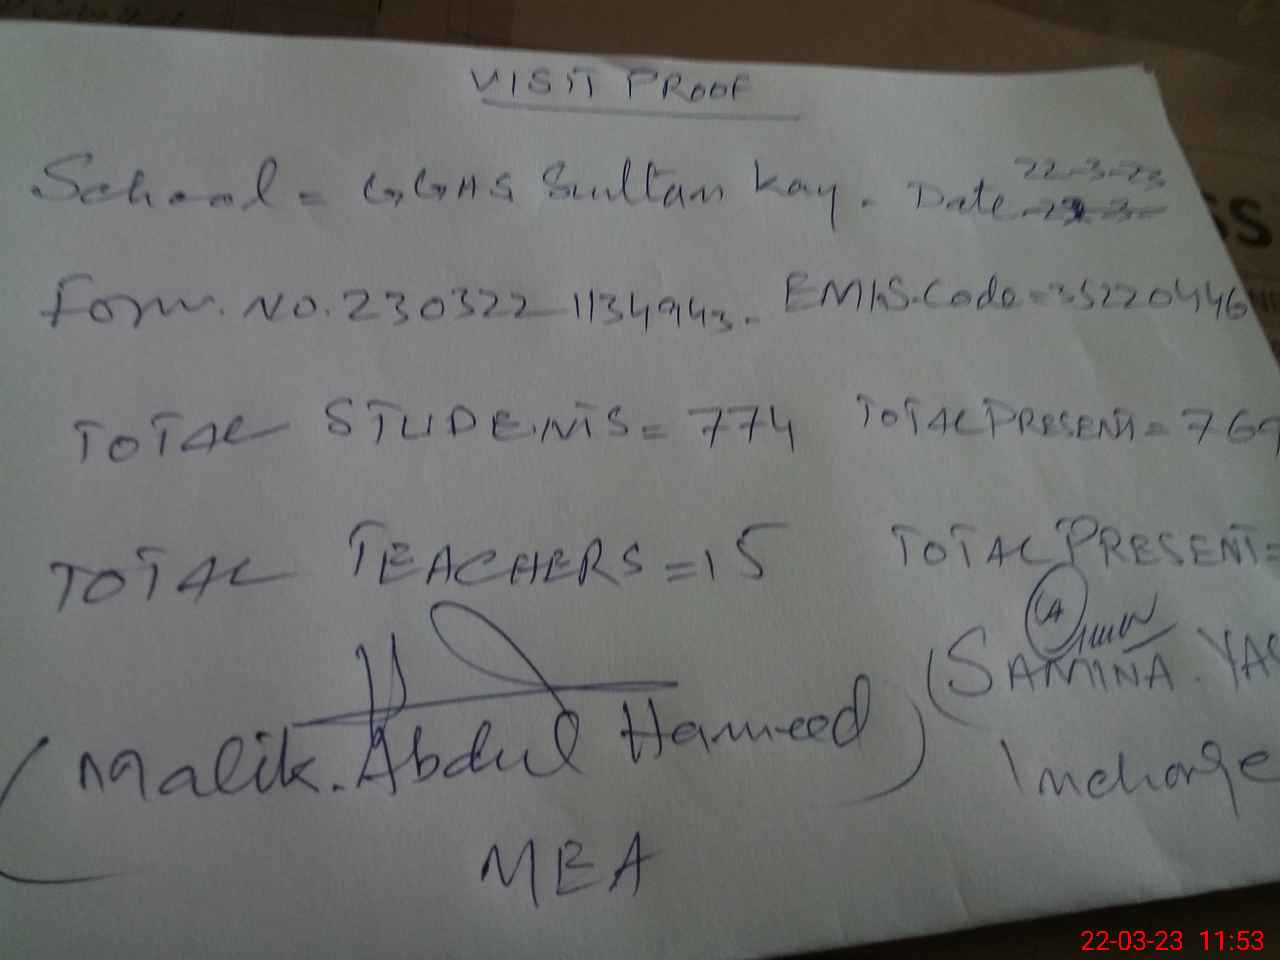 VISIT PROOF
School = G.G.H.S Sultan Kay. Date 22-3-23
Form. No. 230322-1134943. EMIS. Code = 35220446
TOTAL STUDENTS = 774 TOTAL PRESENT = 769
TOTAL TEACHERS = 15 TOTAL PRESENT =
(Malik. Abdul Hameed) (SAMINA. YAS
MEA Incharge
SS
22-03-23 11:53